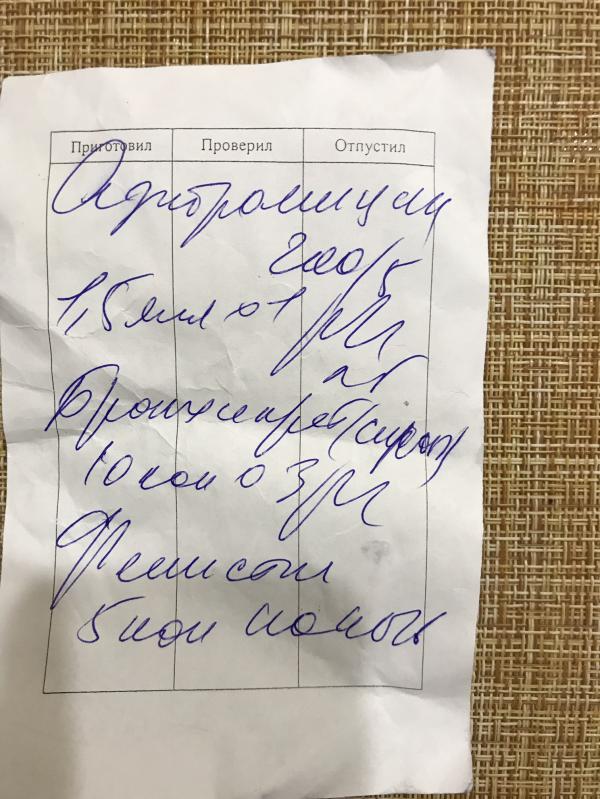 Приготовил Проверил Отпустил
Азитромицин
200/5
1,5 мл х 1 р/д
Бронхипрет (сироп)
10 кап х 3 р/д
Фенистил
5 кап